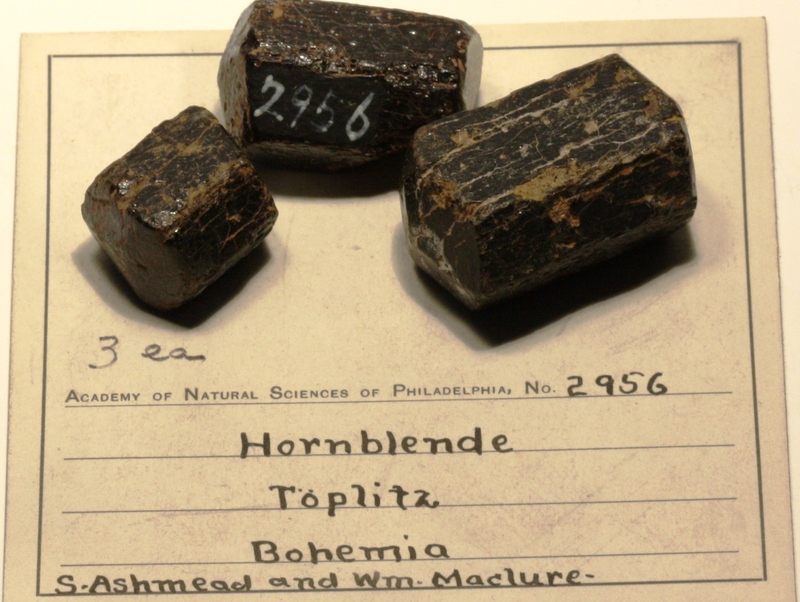 2956
3 ea
Academy of Natural Sciences of Philadelphia, No. 2956
Hornblende
Töplitz
Bohemia
S. Ashmead and Wm. Maclure-